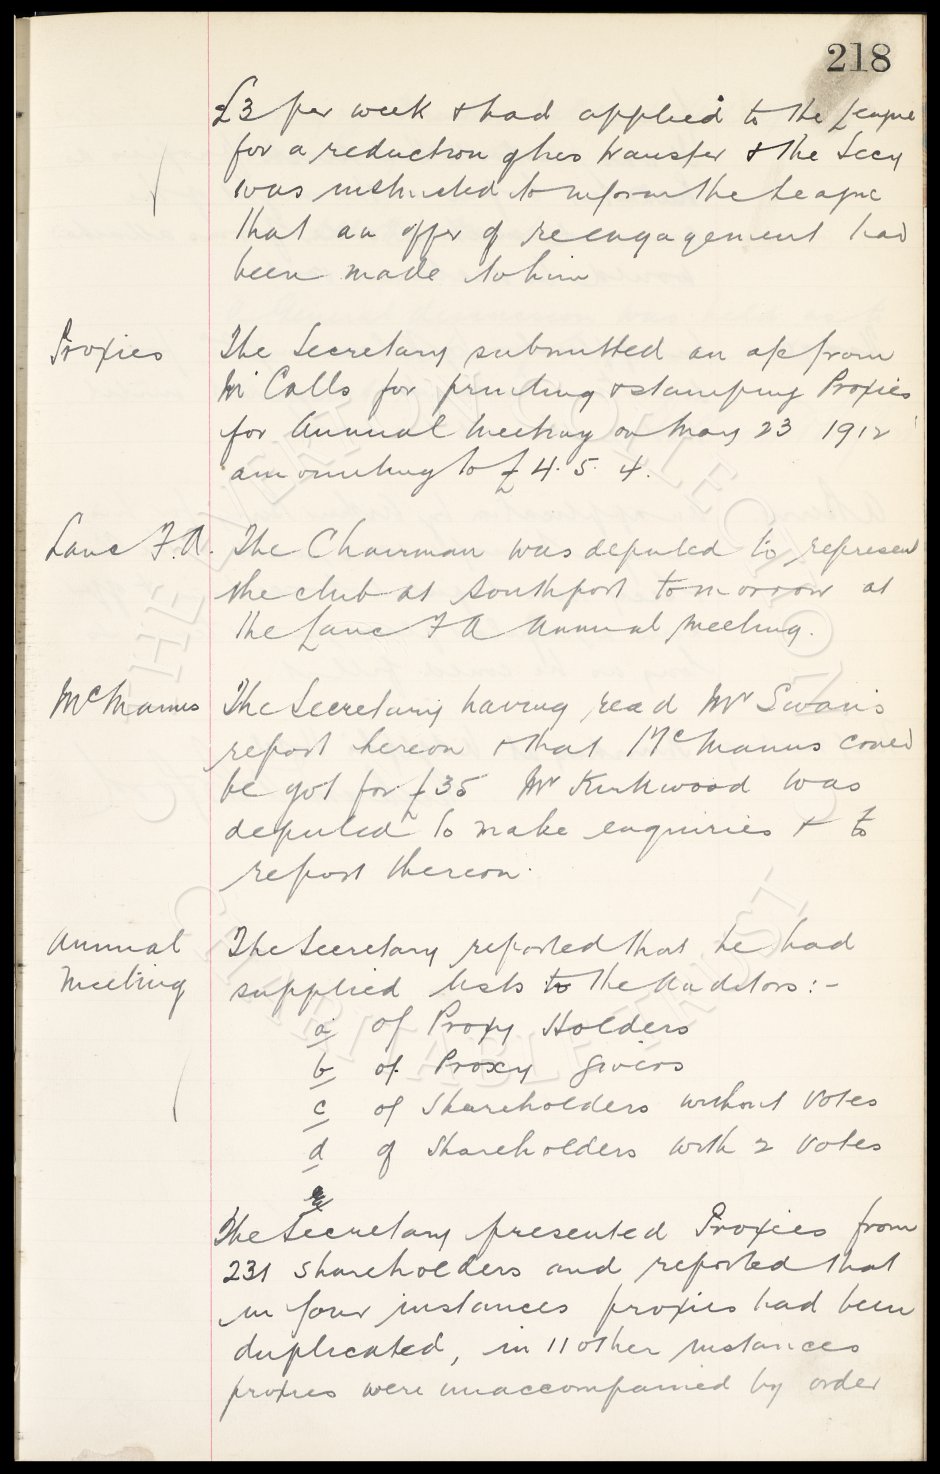 218
£3 per week & had applied to the League
for a reduction of his transfer & the Secy
was instructed to inform the League
that an offer of reengagement had
been made to him
Proxies
The Secretary submitted an a/c from
Mr Calls for printing & stamping Proxies
for Annual Meeting on May 23 1912
amounting to £4. 5. 4.
Lanc F.A.
The Chairman was deputed to represent
the club at Southport tomorrow at
the Lanc F A Annual Meeting.
McManus
The Secretary having read Mr Swan's
report hereon & that McManus could
be got for £35 Mr Kirkwood was
deputed to make enquiries & to
report thereon.
Annual
Meeting
The Secretary reported that he had
supplied lists to the Auditors:-
a of Proxy Holders
b of Proxy Givers
c of Shareholders without Votes
d of Shareholders with 2 Votes
The Secretary presented Proxies from
231 Shareholders and reported that
in four instances proxies had been
duplicated, in 11 other instances
proxies were unaccompanied by order